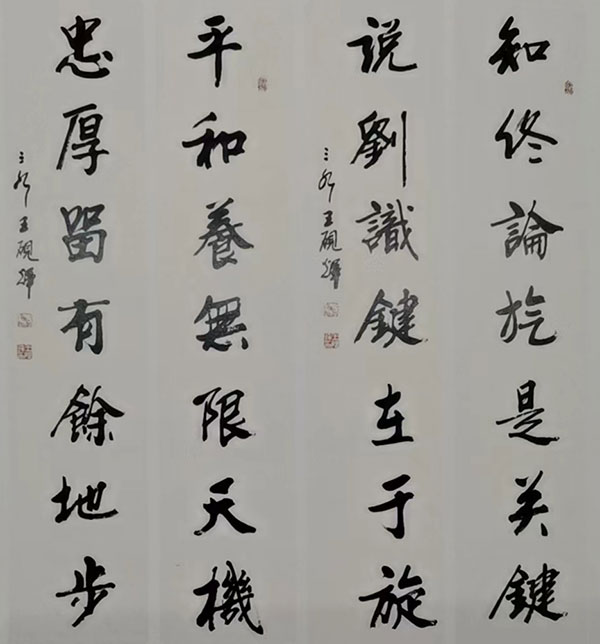 知佟論是关鍵
说劉識鍵在于旋
王硯輝
平和養無限天機
忠厚留有餘地步
王硯輝